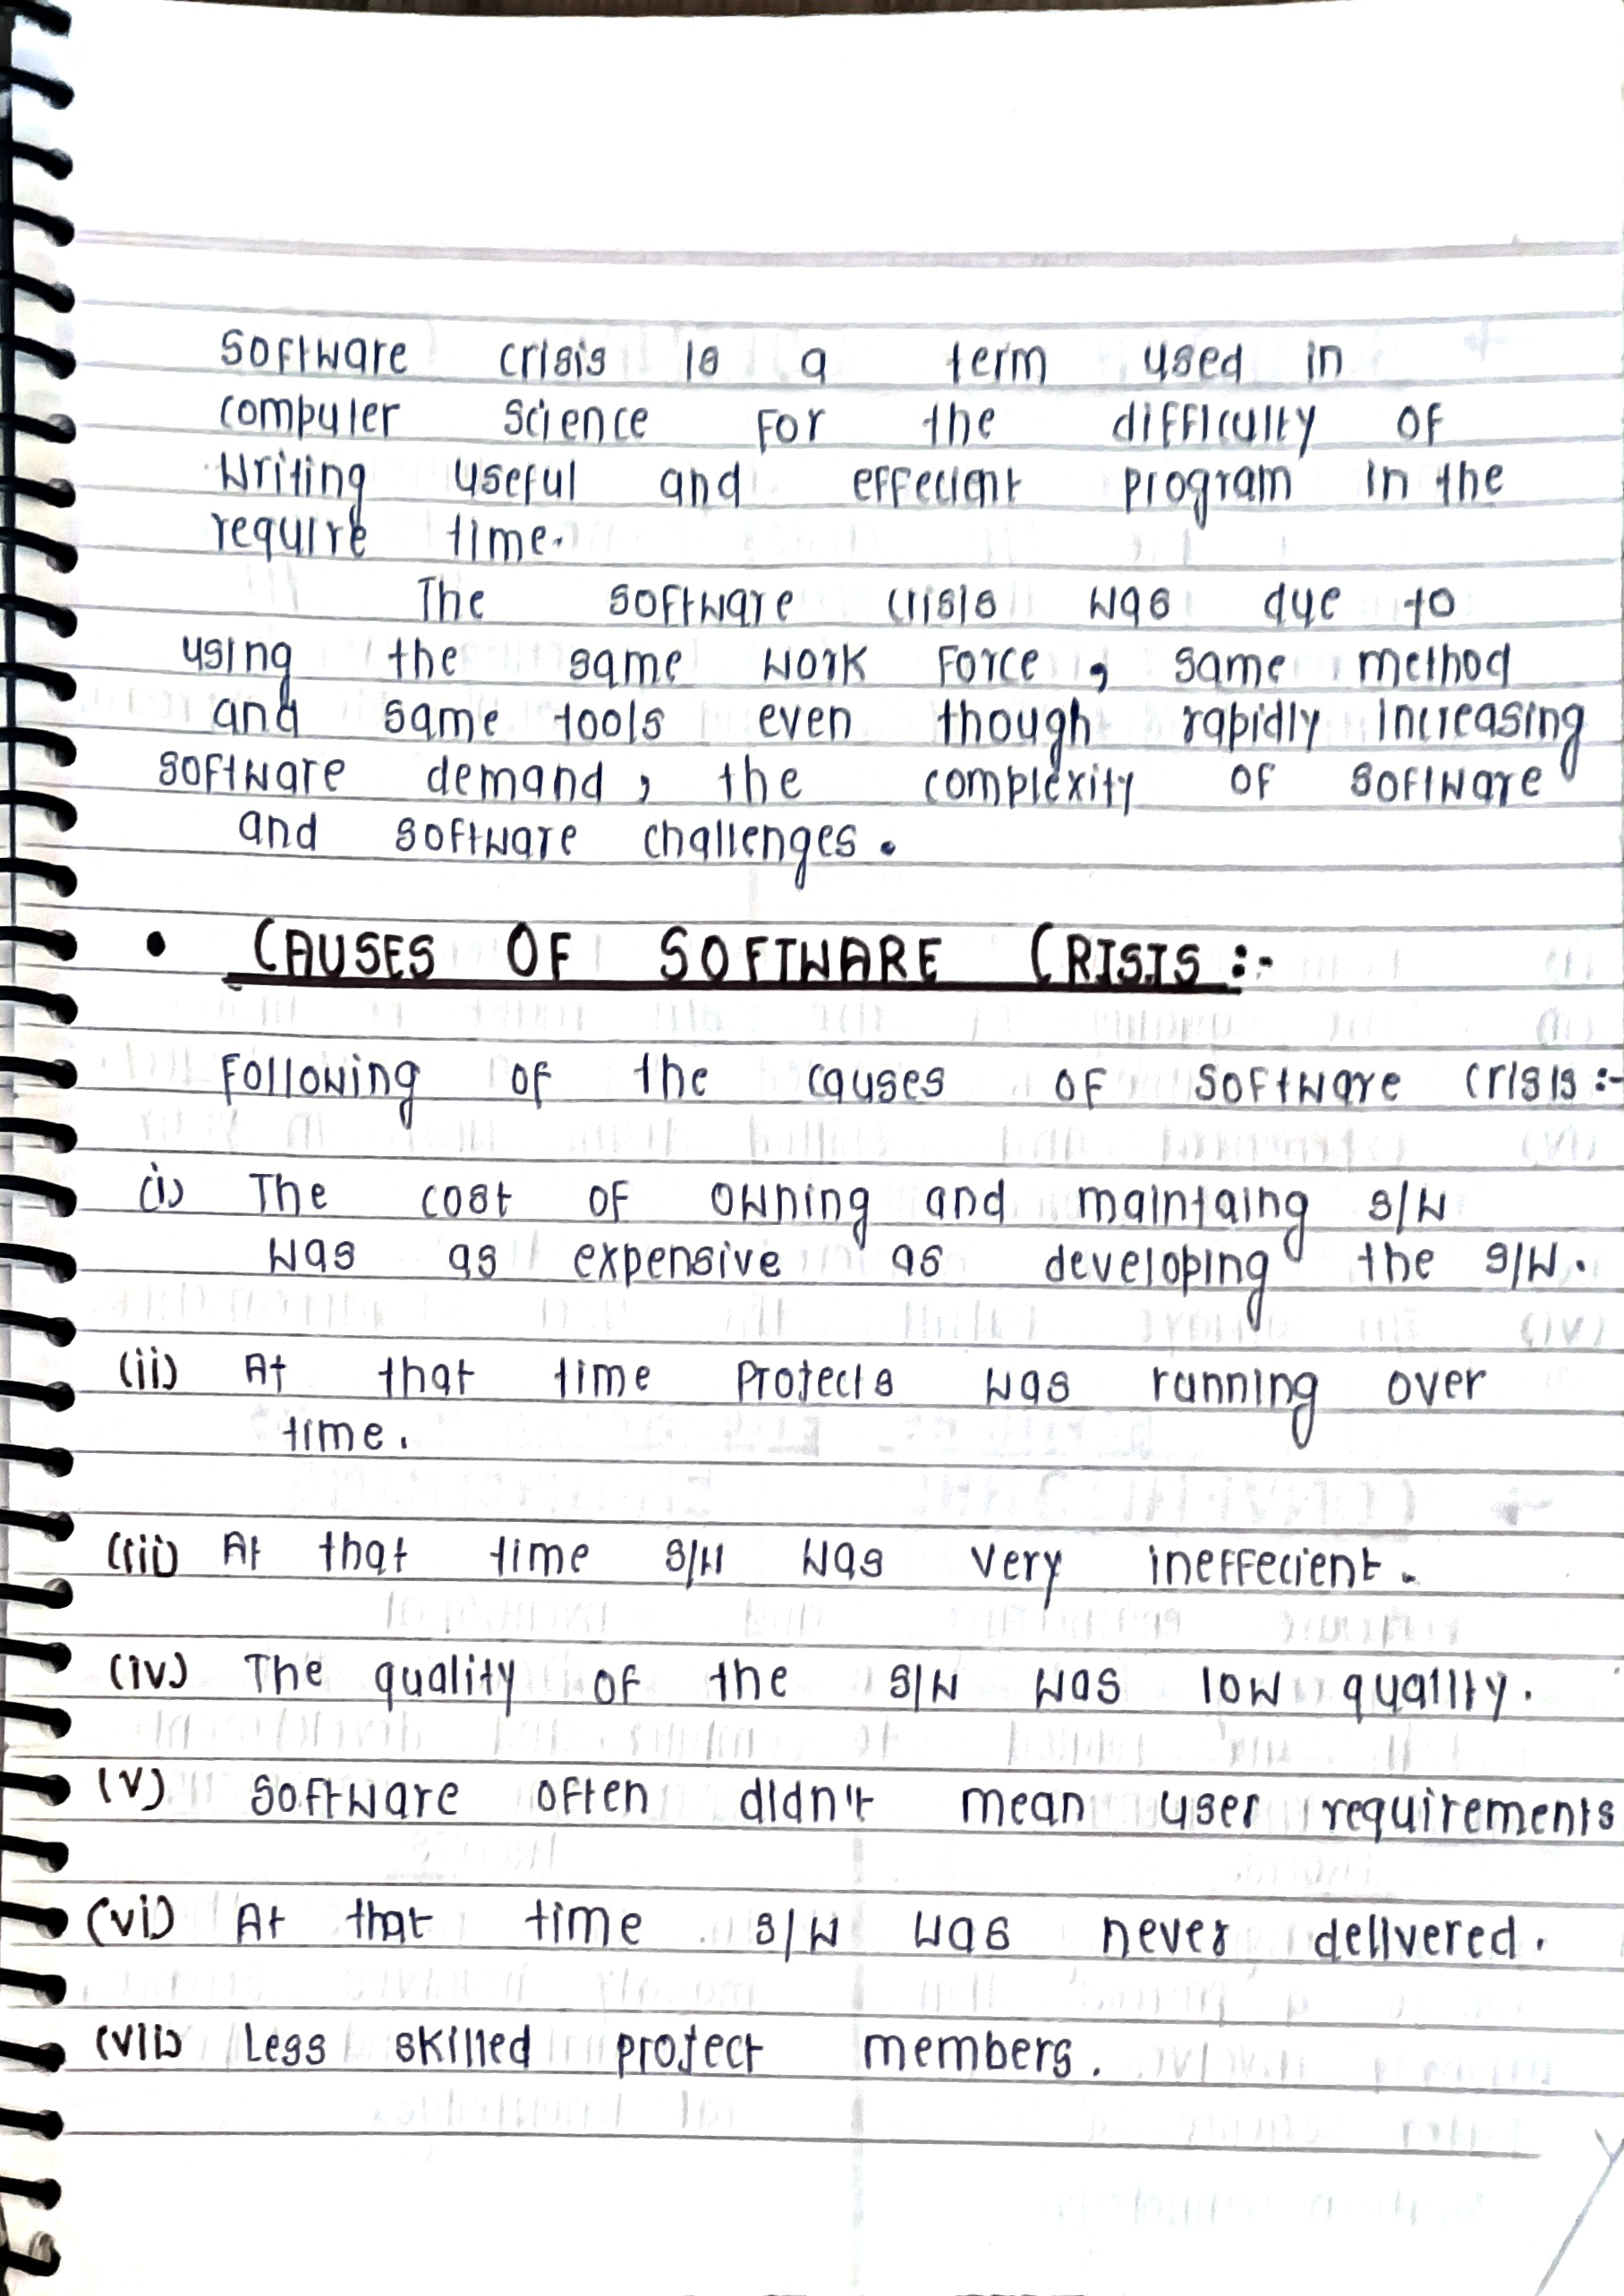 Software crisis is a term used in
computer science for the difficulty of
writing useful and effecient program in the
require time.
The software crisis was due to
using the same work force, same method
and same tools even though rapidly increasing
software demand, the complexity of software
and software challenges.
• CAUSES OF SOFTWARE CRISIS :-
Following of the causes of software crisis :-
(i) The cost of owning and maintaing s/w
was as expensive as developing the s/w.
(ii) At that time projects was running over
time.
(iii) At that time s/w was very ineffecient.
(iv) The quality of the s/w was low quality.
(v) Software often didn't mean user requirements
(vi) At that time s/w was never delivered.
(vii) Less skilled project members.